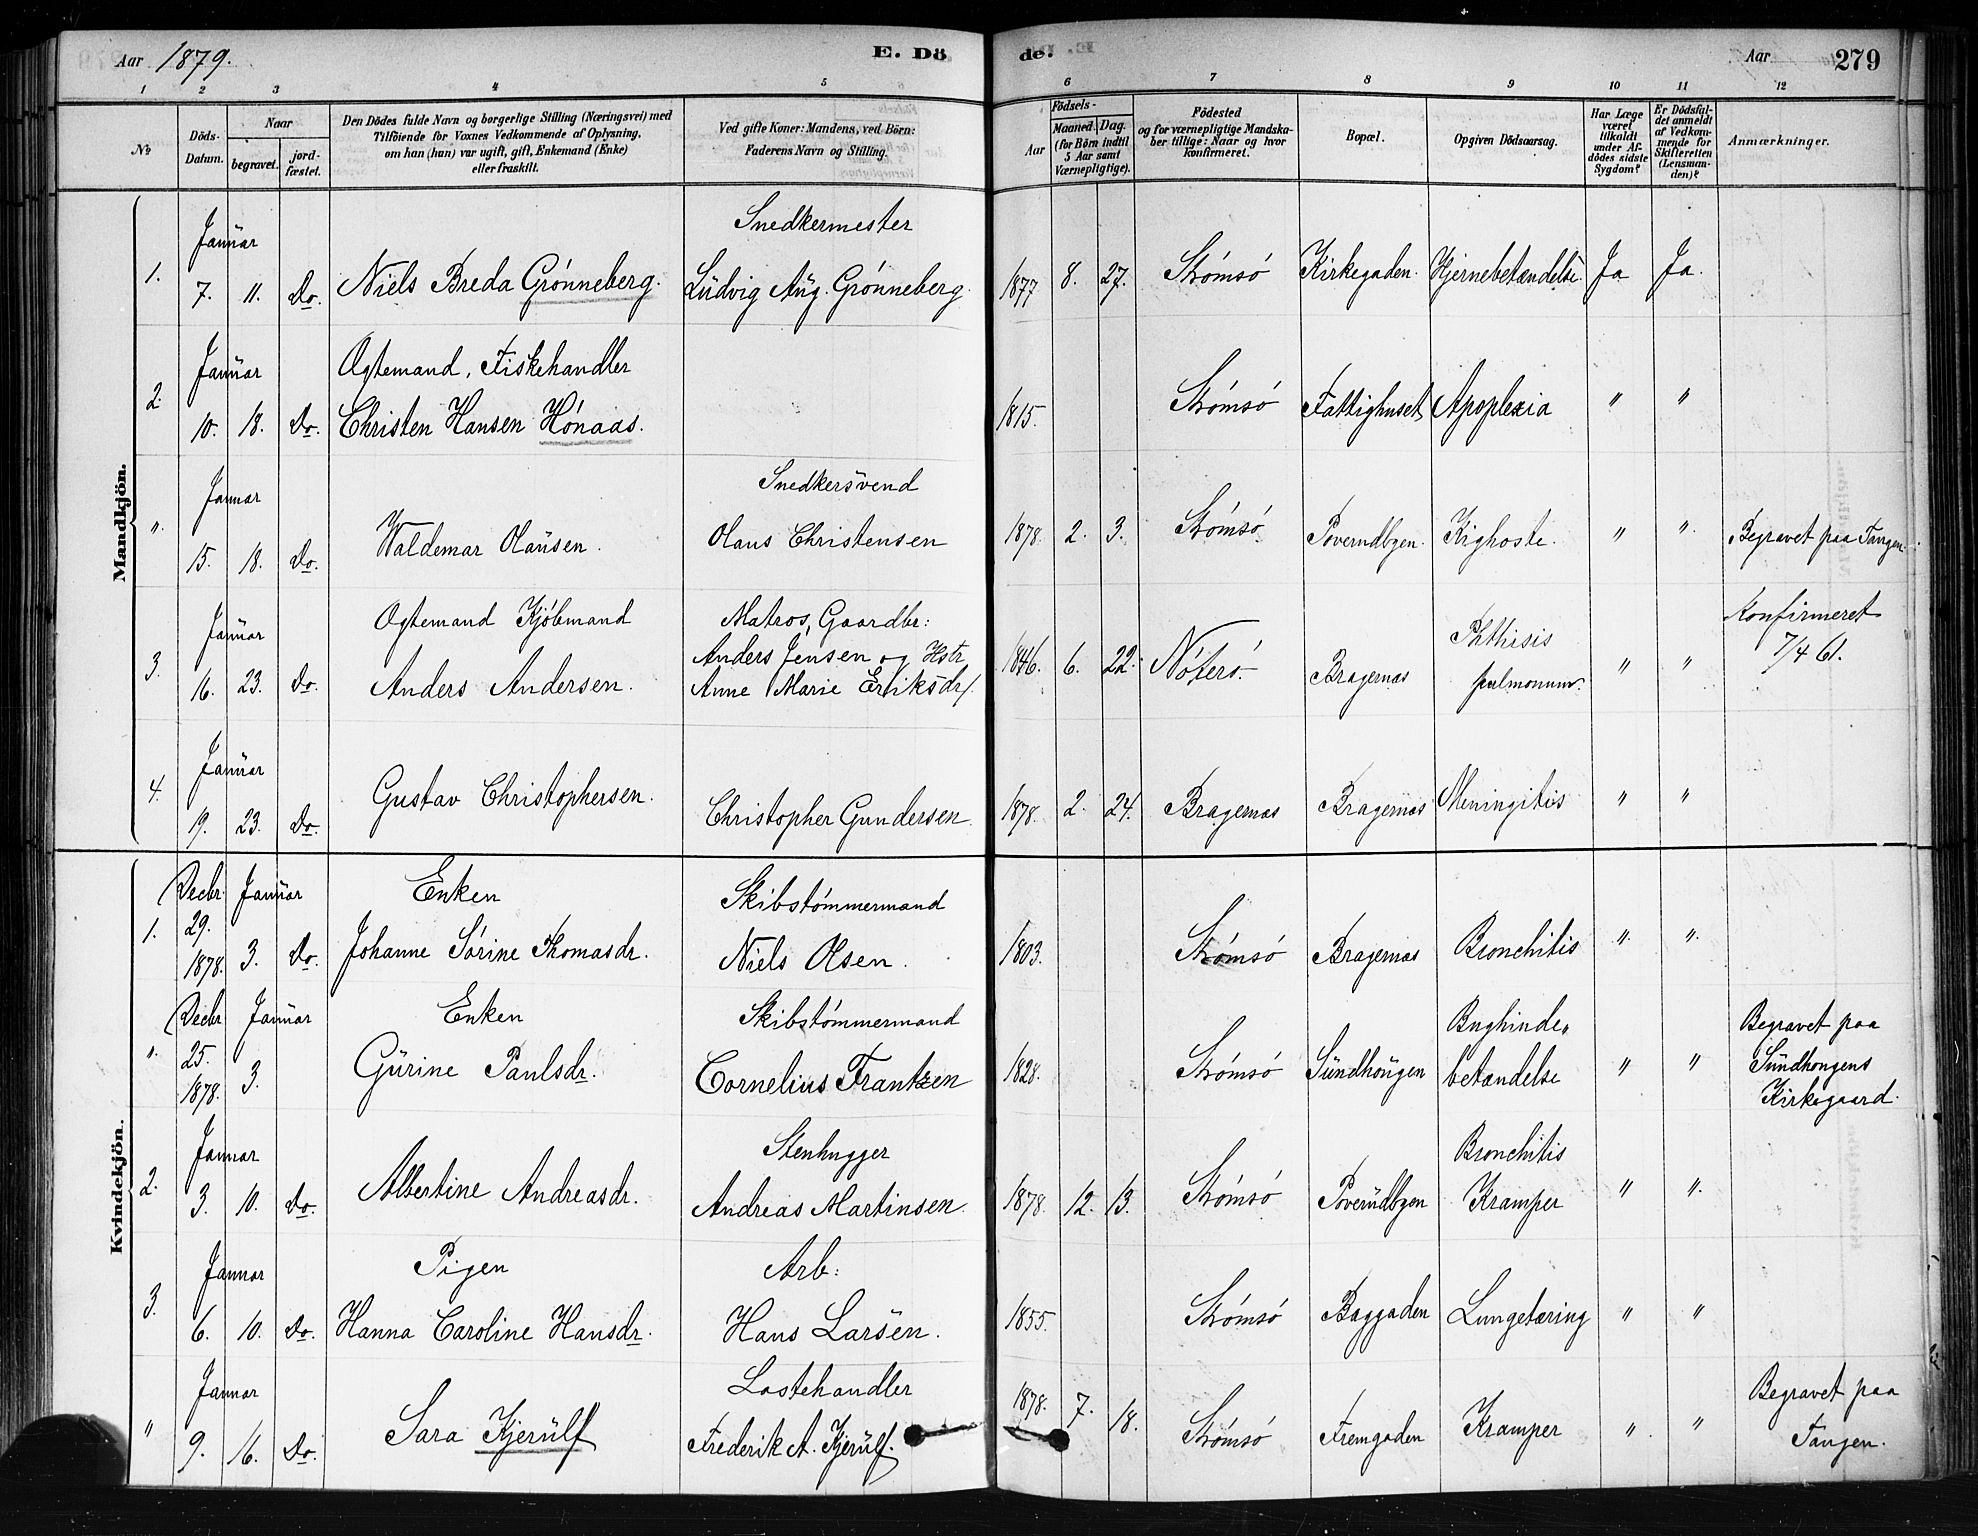 Aar 1879.
E. Dö
de.
Aar
279
1 2 3 4 5 6 7 8 9 10 11 12
№
Döds-
Datum.
Naar
begravet.
jord-
fæstet.
Den Dödes fulde Navn og borgerlige Stilling (Næringsvei) med
Tilföiende for Voxnes Vedkommende af Oplysning,
om han (hun) var ugift, gift, Enkemand (Enke)
eller fraskilt.
Ved gifte Koner: Mandens, ved Börn:
Faderens Navn og Stilling.
Födsels-
Aar
Maaned.
Dag.
(for Börn indtil
5 Aar samt
Værnepligtige).
Födested
og for værnepligtige Mandska-
ber tillige: Naar og hvor
konfirmeret.
Bopæl.
Opgiven Dödsaarsag.
Har Læge
været
tilkaldt
under Af-
dödes sidste
Sygdom?
Er Dödsfal-
det anmeldt
af Vedkom-
mende for
Skifteretten
(Lensman-
den)?
Anmærkninger.
Mandkjön.
Januar
Snedkermester
1. 7. 11. Do. Niels Breda Grónneberg. Ludvig Aug. Grónneberg. 1877 8. 27. Strómsó Kirkegaden. Hjernebetændelse. Ja Ja.
Januar
Ogtemand, Fiskehandler
2. 10. 18. Do. Christen Hansen Hónaas. 1815. Strómsó Fattighuset Apoplexia " "
Januar
Snedkersvend
". 15. 18. Do. Waldemar Olausen. Olaus Christensen 1878. 2. 3. Strómsó Poverudbyen. Kighoste. " " Begravet paa Tangen.
Januar
Ogtemand Kjóbmand
Matros, Gaardbr:
Anders Jensen og Hstr
3. 16. 23. Do. Anders Andersen. Anne Marie Eriksdr. 1846. 6. 22. Nóteró. Bragernas Phthisis
pulmonum. " " Konfirmeret
7/4 61.
Januar
4. 19. 23. Do. Gustav Christophersen. Christopher Gundersen 1878. 2. 24. Bragernas Bragernas Meningitis " "
Kvindekjön.
Decbr. Januar
Enken
Skibstómmermand
1. 29.
1878. 3. Do. Johanne Sórine Thomasdr. Niels Olsen. 1803. Strómsó Bragernas Bronchitis " "
Decbr Januar
Enken
Skibstómmermand
". 25.
1878. 3. Gurine Paulsdr. Cornelius Frantzen 1828. Strómsó Sundhougen Bughinde"
betændelse " " Begravet paa
Sundhougens
Kirkegaard.
Januar
Stenhugger
2. 3. 10. Do. Albertine Andreasdr. Andreas Martinsen. 1878. 12. 13. Strómsó Poverudbyen Bronchitis
Kramper " "
Januar
Pigen
Arb:
3. 6. 10. Do. Hanna Caroline Hansdr. Hans Larsen. 1855. Strómsó Baggaden Lungetæring " "
Januar
Lastehandler
" 9. 16. Do. Sara Kjerulf Frederik A. Kjerulf. 1878. 7. 18. Strómsó Fremgaden Kramper " " Begravet paa
Tangen.